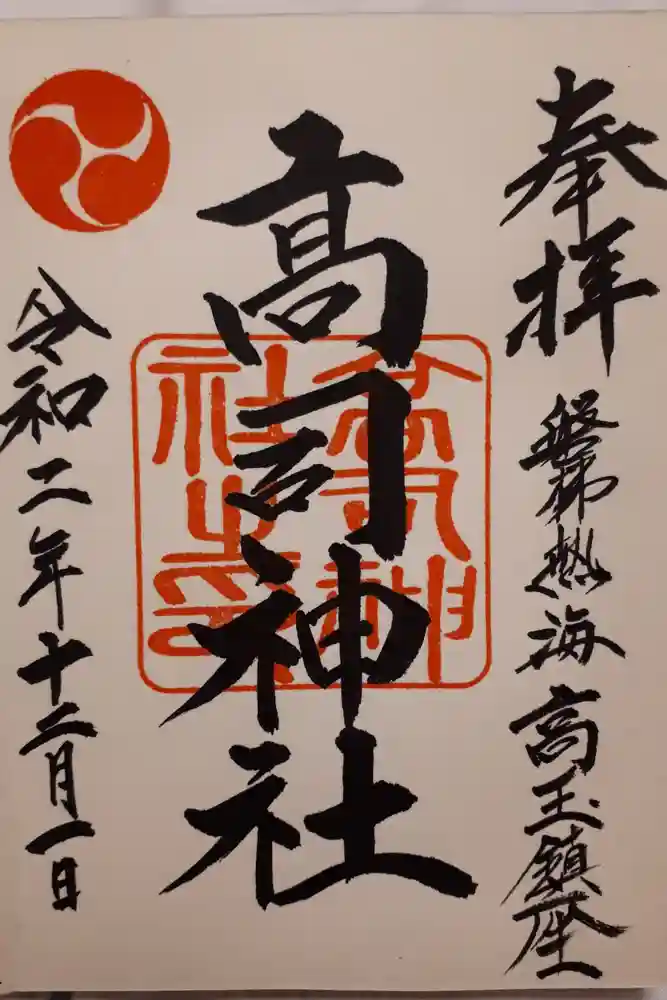 奉拝
磐梯熱海高玉鎮座
高司神社
令和二年十二月一日